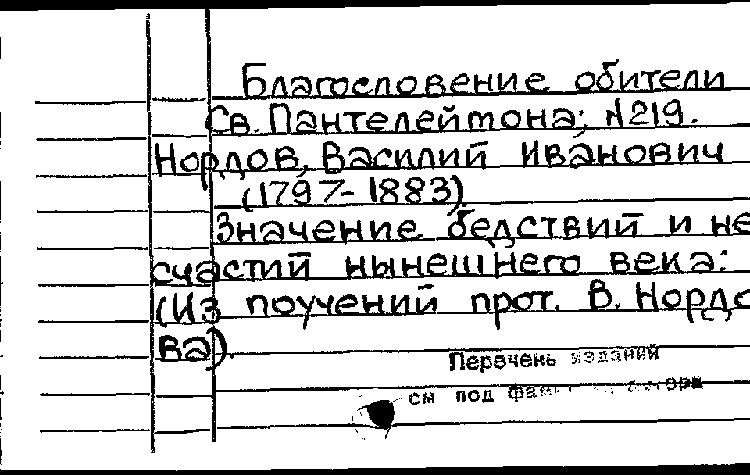 Благословение обители
Св. Пантелеймона; №219.
Нордов, Василий Иванович
(1797-1883)
Значение бедствий и не
счастий нынешнего века:
(Из поучений прот. В. Нордо
ва).
Перечень изданий
см под